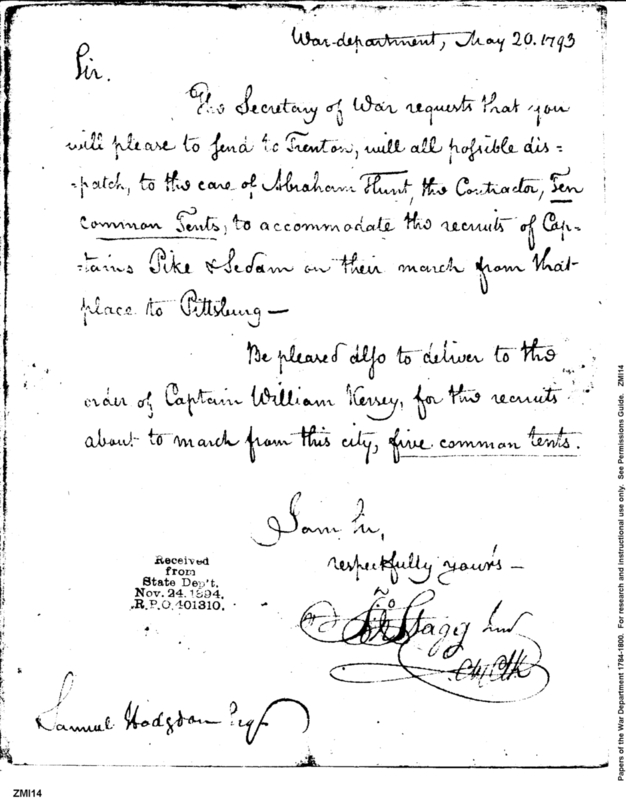 War-department, May 20. 1793
Sir.
The Secretary of War requests that you
will please to send to Trenton, will all possible dis=
=patch, to the care of Abraham Hunt, the Contractor, Ten
common Tents, to accommodate the recruits of Cap=
=tains Pike & Sedam on their march from that
place to Pittsburg—
Be pleased also to deliver to the
order of Captain William Kersey, for the recruits
about to march from this city, five common tents.
I am Sir,
respectfully yours—
Jno Stagg Junr
Ch. Clk
Received
from
State Dep't.
Nov. 24. 1894.
R.P.O. 401310.
Samuel Hodgdon Esqr
Papers of the War Department 1784-1800. For research and instructional use only. See Permissions Guide. ZMI14
ZMI14